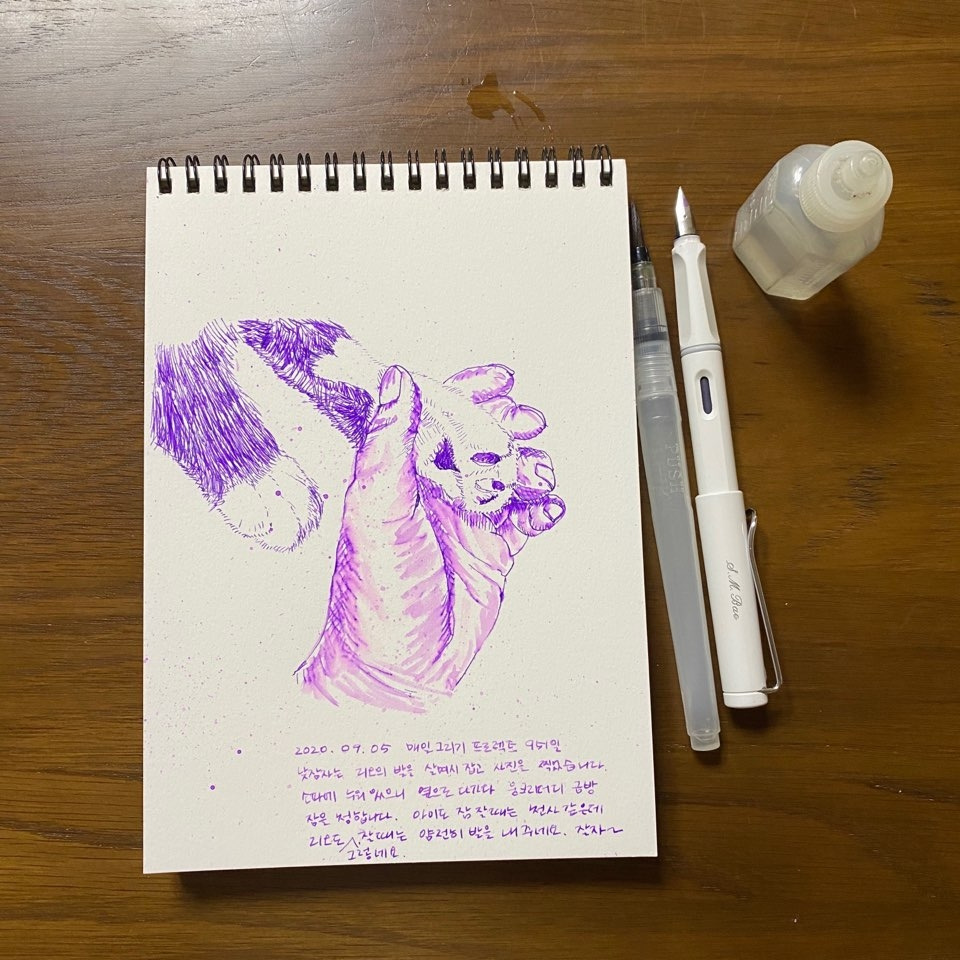 2020. 09. 05 매일 그리기 프로젝트 951일
낮잠자는 리오의 발을 살며시 잡고 사진을 찍었습니다.
소파에 누워 있으니 옆으로 다가와 웅크리더니 금방
잠을 청합니다. 아이도 잠 잘때는 천사 같은데
리오도 잘때는 얌전히 발을 내 주네요. 잘자~
그렇네요.
PUSH
S. M. Bae